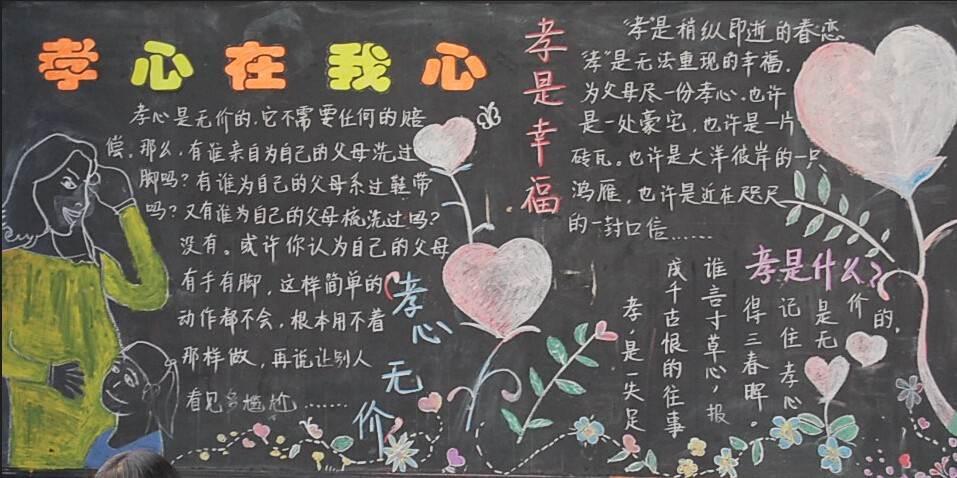 孝心在我心
孝心是无价的.它不需要任何的赔
偿。那么.有谁亲自为自己的父母洗过
脚吗?有谁为自己的父母系过鞋带
吗?又有谁为自己的父母梳洗过吗?
没有。或许你认为自己的父母
有手有脚，这样简单的
动作都不会，根本用不着
那样做，再说,让别人
看见多尴尬......
孝心无价
孝是幸福
“孝”是稍纵即逝的眷恋
“孝”是无法重现的幸福.
为父母尽一份孝心.也许
是一处豪宅，也许是一片
砖瓦。也许是大洋彼岸的一只
鸿雁，也许是近在咫尺
的一封口信......
孝是什么?
孝,是一失足
成千古恨的往事
谁言寸草心，报
得三春晖.
记住孝心
是无
价的.